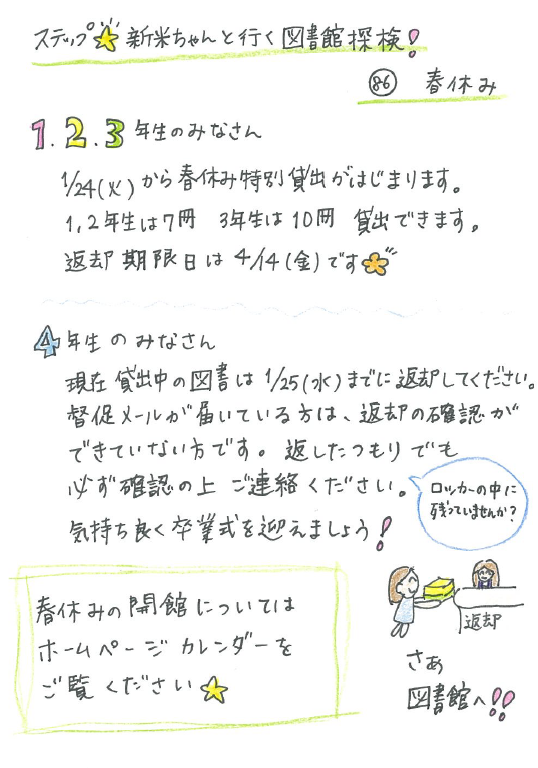 ステップ☆新米ちゃんと行く図書館探検!
86 春休み
1.2.3年生のみなさん
1/24(火)から春休み特別貸出がはじまります。
1,2年生は7冊 3年生は10冊 貸出できます。
返却期限日は4/14(金)です
4年生のみなさん
現在貸出中の図書は1/25(水)までに返却してください。
督促メールが届いている方は、返却の確認が
できていない方です。返したつもりでも
必ず確認の上ご連絡ください。
気持ち良く卒業式を迎えましょう!
ロッカーの中に
残っていませんか?
返却
春休みの開館については
ホームページカレンダーを
ご覧ください☆
さぁ
図書館へ!!